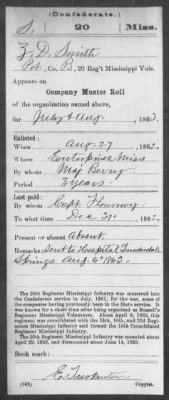 (Confederate.)
S. 20 Miss.
Z. D. Smith
Pvt., Co. B, 20 Reg't Mississippi Vols.
Appears on
Company Muster Roll
of the organization named above,
for July & Aug, 1863.
Enlisted:
When Aug 27, 186
Where Enterprise Miss
By whom Maj Berry
Period 3 years
Last paid:
By whom Capt
To what time Dec 31, 1862.
Present or absent Absent.
Remarks: Sent to Hospital Lauderdale
Springs Aug 6" 1863.
The 20th Regiment Mississippi Infantry was mustered into
the Confederate service in July, 1861, for the war, some of the
companies having previously been in the State service. It
was known for a short time after being organized as Russell's
Regiment Mississippi Volunteers. About April 9, 1865, this
regiment was consolidated with the
Regiment Mississippi Infantry and formed the 15th Consolidated
Regiment Mississippi Infantry.
The 20th Regiment Mississippi Infantry was
April 1865, and
Book mark:
(642) Copyist.